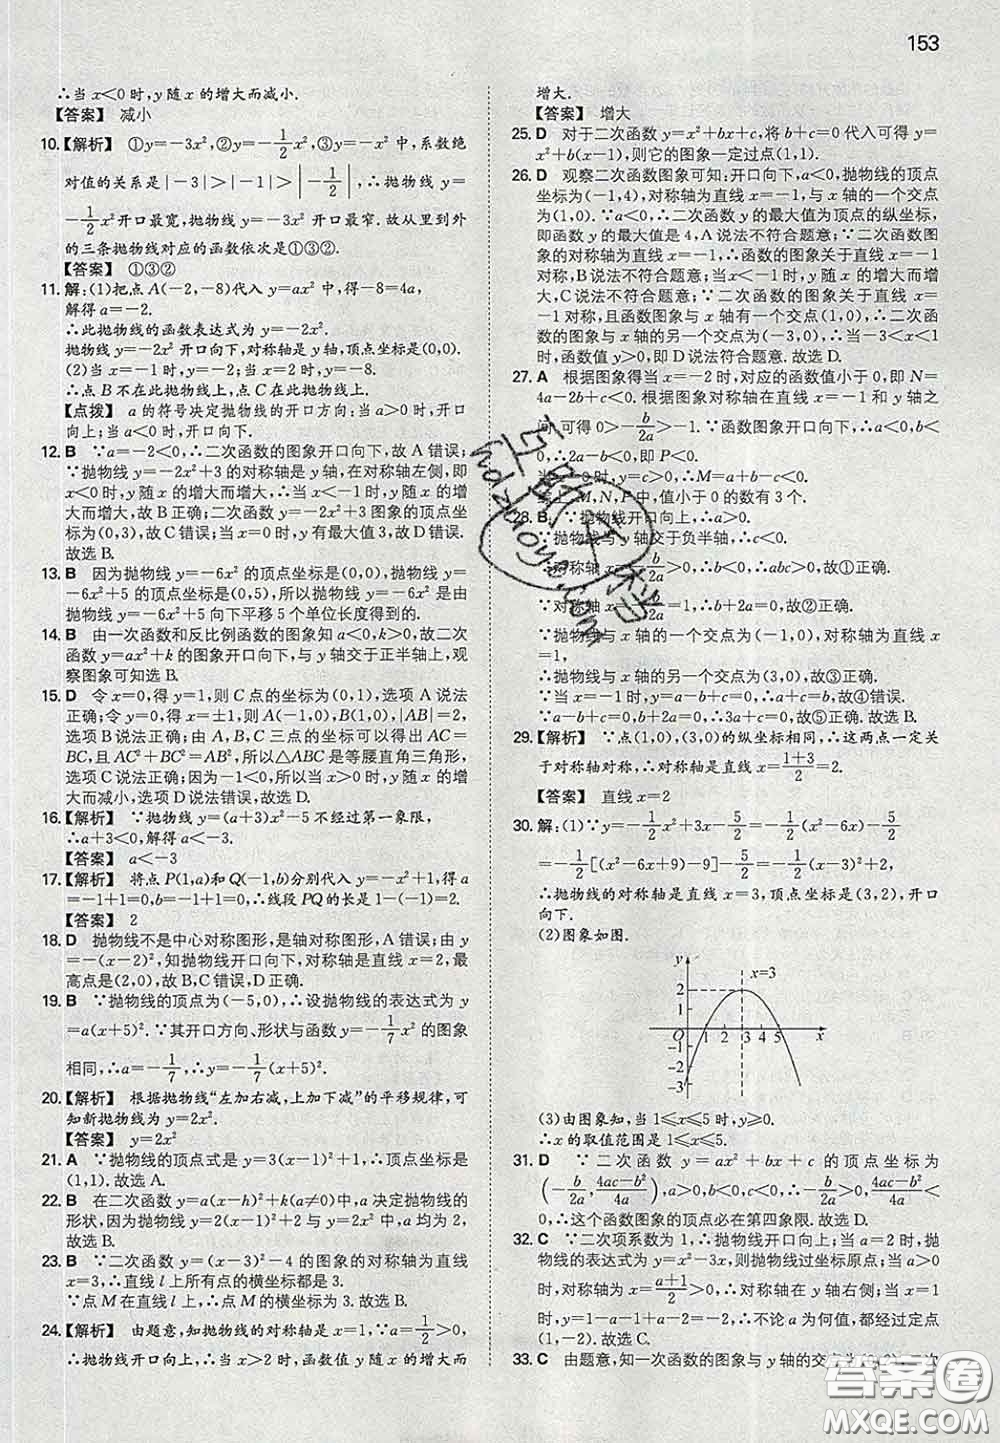 153
∴当 x<0 时,y 随 x 的增大而减小.
【答案】 减小
10.【解析】 ①y=-3x²,②y=-1/2x²,③y=-x² 中,系数绝
对值的关系是|-3|>|-1|>|-1/2|,∴抛物线 y=
-1/2x²开口最宽,抛物线 y=-3x² 开口最窄.故从里到外
的三条抛物线对应的函数依次是①③②.
【答案】 ①③②
11.解:(1)把点 A(-2,-8)代入 y=ax² 中,得-8=4a,
解得 a=-2.
∴此抛物线的函数表达式为 y=-2x².
抛物线 y=-2x² 开口向下,对称轴是 y 轴,顶点坐标是(0,0).
(2)当 x=-1 时,y=-2;当 x=2 时,y=-8.
∴点 B 不在此抛物线上,点 C 在此抛物线上.
【点拨】 a 的符号决定抛物线的开口方向:当 a>0 时,开口
向上;当 a<0 时,开口向下.
12. B ∵a=-2<0,∴二次函数的图象开口向下,故 A 错误;
∵抛物线 y=-2x²+3 的对称轴是 y 轴,在对称轴左侧,即
x<0 时,y 随 x 的增大而增大,在对称轴右侧,即 x>0
时,y 随 x 的增大而减小,当 x<0 时,y 随 x 的增大而
增大,故 B 正确;二次函数 y=-2x²+3 图象的顶点坐标
为(0,3),故 C 错误;当 x=0 时,y 有最大值 3,故 D 错误.
故选 B.
13. B 因为抛物线 y=-6x² 的顶点坐标是(0,0),抛物线
y=-6x²+5 的顶点坐标是(0,5),所以抛物线 y=-6x² 是由
抛物线 y=-6x²+5 向下平移 5 个单位长度得到的.
14. B 由一次函数和反比例函数的图象知 a<0,k>0,故二次
函数 y=ax²+k 的图象开口向下,与 y 轴交于正半轴上,观
察图象可知选 B.
15. D 令 x=0,得 y=1,则 C 点的坐标为(0,1),选项 A 说法
正确;令 y=0,得 x=±1,则 A(-1,0),B(1,0),|AB|=2,
选项 B 说法正确;由 A,B,C 三点的坐标可以得出 AC=
BC,且 AC²+BC²=AB²,所以△ABC 是等腰直角三角形,
选项 C 说法正确;因为-1<0,所以当 x>0 时,y 随 x 的增
大而减小,选项 D 说法错误,故选 D.
16.【解析】 ∵抛物线 y=(a+3)x²-5 不经过第一象限,
∴a+3<0,解得 a<-3.
【答案】 a<-3
17.【解析】 将点 P(1,a)和 Q(-1,b)分别代入 y=-x²+1,得 a
=-1+1=0,b=-1+1=0,∴线段 PQ 的长是 1-(-1)=2.
【答案】 2
18. D 抛物线不是中心对称图形,是轴对称图形,A 错误;由 y
=-(x-2)²,知抛物线开口向下,对称轴是直线 x=2,最
高点是(2,0),故 B,C 错误,D 正确.
19. B ∵抛物线的顶点为(-5,0),∴设抛物线的表达式为 y
=a(x+5)².∵其开口方向、形状与函数 y=-1/7x² 的图象
相同,∴a=-1/7,∴y=-1/7(x+5)².
20.【解析】 根据抛物线“左加右减,上加下减”的平移规律,可
知新抛物线为 y=2x².
【答案】 y=2x²
21. A ∵抛物线的顶点式是 y=3(x-1)²+1,∴顶点坐标是
(1,1).故选 A.
22. B 在二次函数 y=a(x-h)²+k(a≠0)中,a 决定抛物线的
形状,因为抛物线 y=2(x-1)²+3 与 y=2x²,a 均为 2,
故选 B.
23. B ∵二次函数 y=(x-3)²-4 的图象的对称轴为直线
x=3,∴直线 l 上所有点的横坐标都是 3.
∵点 M 在直线 l 上,∴点 M 的横坐标为 3.故选 B.
24.【解析】 由题意,知抛物线的对称轴是 x=1,∵a=1/2>0,
∴抛物线开口向上,∴当 x>2 时,函数值 y 随 x 的增大而
增大.
【答案】 增大
25. D 对于二次函数 y=x²+bx+c,将 b+c=0 代入可得 y=
x²+b(x-1),则它的图象一定过点(1,1).
26. D 观察二次函数图象可知:开口向下,a<0,抛物线的顶点
坐标为(-1,4),对称轴为直线 x=-1,与 x 轴的一个交点
为(1,0).∵a<0,∴二次函数 y 的最大值为顶点的纵坐标,
即函数 y 的最大值是 4,A 说法不符合题意;∵二次函数图
象的对称轴为直线 x=-1,∴函数的图象关于直线 x=-1
对称,B 说法不符合题意;∵当 x<-1 时,y 随 x 的增大而
增大,C 说法不符合题意;∵二次函数的图象关于直线 x=
-1 对称,且函数图象与 x 轴的一个交点为(1,0),∴二次函
数的图象与 x 轴的另一个交点为(-3,0),∴当-3<x<1
时,函数值 y>0,即 D 说法符合题意.故选 D.
27. A 根据图象得当 x=-2 时,对应的函数值小于 0,即 N=
4a-2b+c<0.根据图象对称轴在直线 x=-1 和 y 轴之
间,可得 0>-b/2a>-1.∵函数图象开口向下,∴a<0,b<
0,∴2a-b<0,即 P<0.
当 时,y<0,∴M=a+b-c<0.
综上,M,N,P 中,值小于 0 的数有 3 个.
28. B ∵抛物线开口向上,∴a>0.
∵抛物线与 y 轴交于负半轴,∴c<0.
∵对称轴 x=-b/2a>0,∴b<0,∴abc>0,故①正确.
∵对称轴 x=-b/2a=1,∴b+2a=0,故②正确.
∵抛物线与 x 轴的一个交点为(-1,0),对称轴为直线 x
=1,
∴抛物线与 x 轴的另一个交点为(3,0),故③正确.
∵当 x=-1 时,y=a-b+c=0,∴a+c=b,故④错误.
∵a-b+c=0,b+2a=0,∴3a+c=0,故⑤正确.故选 B.
29.【解析】 ∵点(1,0),(3,0)的纵坐标相同,∴这两点一定关
于对称轴对称,∴对称轴是直线 x=(1+3)/2=2.
【答案】 直线 x=2
30.解:(1)∵y=-1/2x²+3x-5/2=-1/2(x²-6x)-5/2
=-1/2[(x²-6x+9)-9]-5/2=-1/2(x-3)²+2,
∴抛物线的对称轴是直线 x=3,顶点坐标是(3,2),开口
向下.
(2)图象如图.
y
x=3
2
1
O
1 2 3 4 5
x
-1
-2
-3
(3)由图象知,当 1≤x≤5 时,y≥0.
∴x 的取值范围是 1≤x≤5.
31. D ∵二次函数 y=ax²+bx+c 的顶点坐标为
(-b/2a,(4ac-b²)/4a),a>0,b<0,c<0,∴-b/2a>0,(4ac-b²)/4a<
0,∴这个函数图象的顶点必在第四象限.故选 D.
32. C ∵二次项系数为 1,∴抛物线开口向上;当 a=2 时,抛
物线的表达式为 y=x²-3x,则抛物线过坐标原点;当 a>
0 时,对称轴为 x=(a+1)/2>0,∴对称轴在 y 轴右侧;当 x=
1 时,y=1-(a+1)+a-2=-2,∴不论 a 为何值,都经过定点
(1,-2).故选 C.
33. C 由题意,知一次函数的图象与 y 轴的交点为
答案圈
MXQE.COM